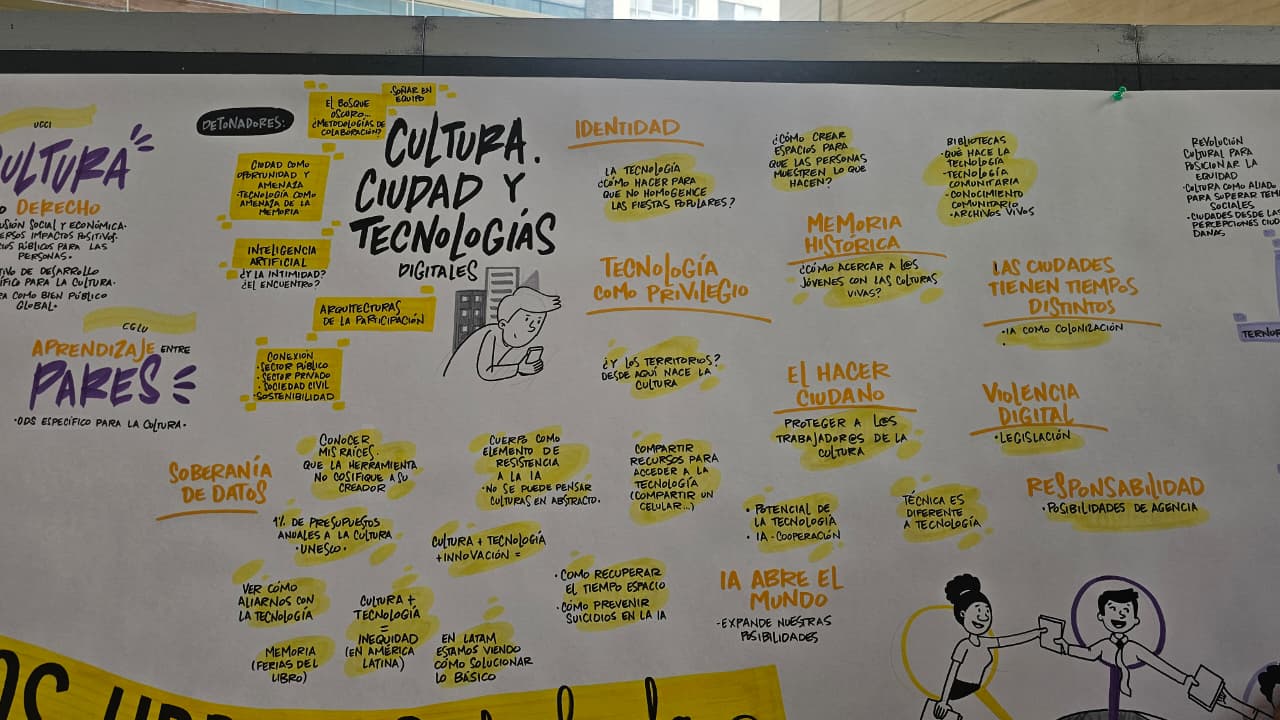 UCCI
CULTURA
DERECHO
SOCIAL Y ECONÓMICA.
IMPACTOS POSITIVOS.
PÚBLICOS PARA LAS
PERSONAS.
DE DESARROLLO
PARA LA CULTURA.
COMO BIEN PÚBLICO
GLOBAL.
CGLU
APRENDIZAJE ENTRE
PARES
•ODS ESPECÍFICO PARA LA CULTURA•
DETONADORES:
EL BOSQUE
OSCURO...
¿METODOLOGÍAS DE
COLABORACIÓN?
•SOÑAR EN
EQUIPO
CIUDAD COMO
OPORTUNIDAD Y
AMENAZA
•TECNOLOGÍA COMO
AMENAZA DE LA
MEMORIA
INTELIGENCIA
ARTIFICIAL
¿Y LA INTIMIDAD?
¿EL ENCUENTRO?
ARQUITECTURAS
DE LA PARTICIPACIÓN
CONEXIÓN
•SECTOR PÚBLICO
•SECTOR PRIVADO
•SOCIEDAD CIVIL
•SOSTENIBILIDAD
CULTURA.
CIUDAD Y
TECNOLOGÍAS
DIGITALES
IDENTIDAD
LA TECNOLOGÍA
¿CÓMO HACER PARA
QUE NO HOMOGENICE
LAS FIESTAS POPULARES?
TECNOLOGÍA
COMO PRIVILEGIO
¿Y LOS TERRITORIOS?
DESDE AQUÍ NACE LA
CULTURA
¿CÓMO CREAR
ESPACIOS PARA
QUE LAS PERSONAS
MUESTREN LO QUE
HACEN?
MEMORIA
HISTÓRICA
¿CÓMO ACERCAR A L@S
JÓVENES CON LAS CULTURAS
VIVAS?
EL HACER
CIUDANO
PROTEGER A L@S
TRABAJADOR@S DE LA
CULTURA
BIBLIOTECAS
•QUÉ HACE LA
TECNOLOGÍA
•TECNOLOGÍA
COMUNITARIA
•CONOCIMIENTO
COMUNITARIO
•ARCHIVOS VIVOS
LAS CIUDADES
TIENEN TIEMPOS
DISTINTOS
•IA COMO COLONIZACIÓN
VIOLENCIA
DIGITAL
•LEGISLACIÓN
RESPONSABILIDAD
•POSIBILIDADES DE AGENCIA
REVOLUCIÓN
CULTURAL PARA
POSICIONAR LA
EQUIDAD
•CULTURA COMO ALIADO
PARA SUPERAR
SOCIALES
•CIUDADES DESDE
PERCEPCIONES CIUDA
DANAS
SOBERANÍA
DE DATOS
CONOCER
MIS RAÍCES.
QUE LA HERRAMIENTA
NO COSIFIQUE A SU
CREADOR
CUERPO COMO
ELEMENTO DE
RESISTENCIA
A LA IA
•NO SE PUEDE PENSAR
CULTURAS EN ABSTRACTO.
COMPARTIR
RECURSOS PARA
ACCEDER A LA
TECNOLOGÍA
(COMPARTIR UN
CELULAR...)
1% DE PRESUPUESTOS
ANUALES A LA CULTURA
•UNESCO•
CULTURA + TECNOLOGÍA
+INNOVACIÓN =
• POTENCIAL DE
LA TECNOLOGÍA
• IA - COOPERACIÓN
TÉCNICA ES
DIFERENTE
A TECNOLOGÍA
VER CÓMO
ALIARNOS CON
LA TECNOLOGÍA
CULTURA +
TECNOLOGÍA
=
INEQUIDAD
(EN AMÉRICA
LATINA)
•COMO RECUPERAR
EL TIEMPO ESPACIO
•CÓMO PREVENIR
SUICIDIOS EN LA IA
IA ABRE EL
MUNDO
-EXPANDE NUESTRAS
POSIBILIDADES
MEMORIA
(FERIAS DEL
LIBRO)
EN LATAM
ESTAMOS VIENDO
CÓMO SOLUCIONAR
LO BÁSICO